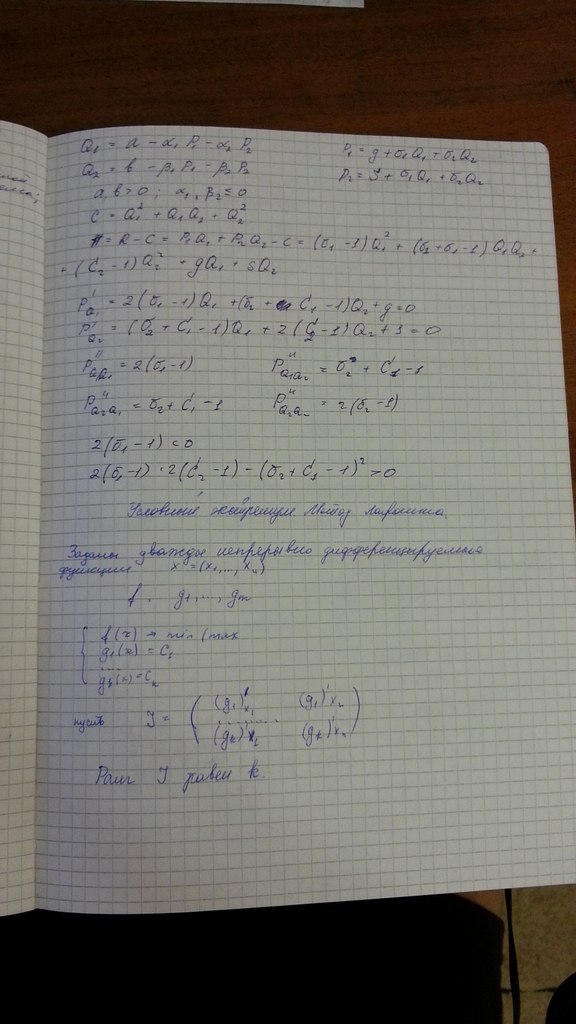 Q₁ = a − α₁ P₁ − α₂ P₂
P₁ = g + σ₁Q₁ + σ₂Q₂
Q₂ = b − β₁P₁ − β₂P₂
P₂ = S + σ₁Q₁ + σ₂Q₂
a, b > 0 ; α₁, β₂ ≤ 0
C = Q₁² + Q₁Q₂ + Q₂²
П = R − C = P₁Q₁ + P₂Q₂ − C = (σ₁ − 1)Q₁² + (σ₂ + σ₁ − 1)Q₁Q₂ +
+ (σ₂ − 1)Q₂² + gQ₁ + SQ₂
P'Q₁ = 2(σ₁ − 1)Q₁ + (σ₂ + σ₁ − 1)Q₂ + g = 0
P'Q₂ = (σ₂ + σ₁ − 1)Q₁ + 2(σ₂ − 1)Q₂ + S = 0
P''Q₁Q₁ = 2(σ₁ − 1)
P''Q₁Q₂ = σ₂ + σ₁ − 1
P''Q₂Q₁ = σ₂ + σ₁ − 1
P''Q₂Q₂ = 2(σ₂ − 1)
2(σ₁ − 1) < 0
2(σ₁ − 1) · 2(σ₂ − 1) − (σ₂ + σ₁ − 1)² > 0
Условный экстремум Метод Лагранжа.
Заданы дважды непрерывно дифференцируемые
функции x = (x₁, ..., xₙ)
f, g₁, ..., gₘ
f(x) → min (max
g₁(x) = C₁
...
gₖ(x) = Cₖ
пусть J = ( (g₁)'x₁ (g₁)'xₙ
........
(gₖ)'x₁ (gₖ)'xₙ )
Ранг J равен k.